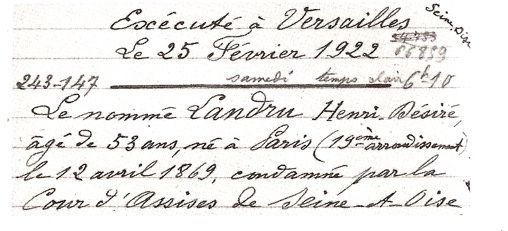 Excécuté à Versailles Seine Oise
Le 25 Février 1922 66859
243-147 samedi temps clair 6h10
Le nommé Landru Henri Désiré,
âgé de 53 ans, né à Paris (19ème arrondissement)
le 12 avril 1869, condamné par la
Cour d'Assises de Seine-et-Oise